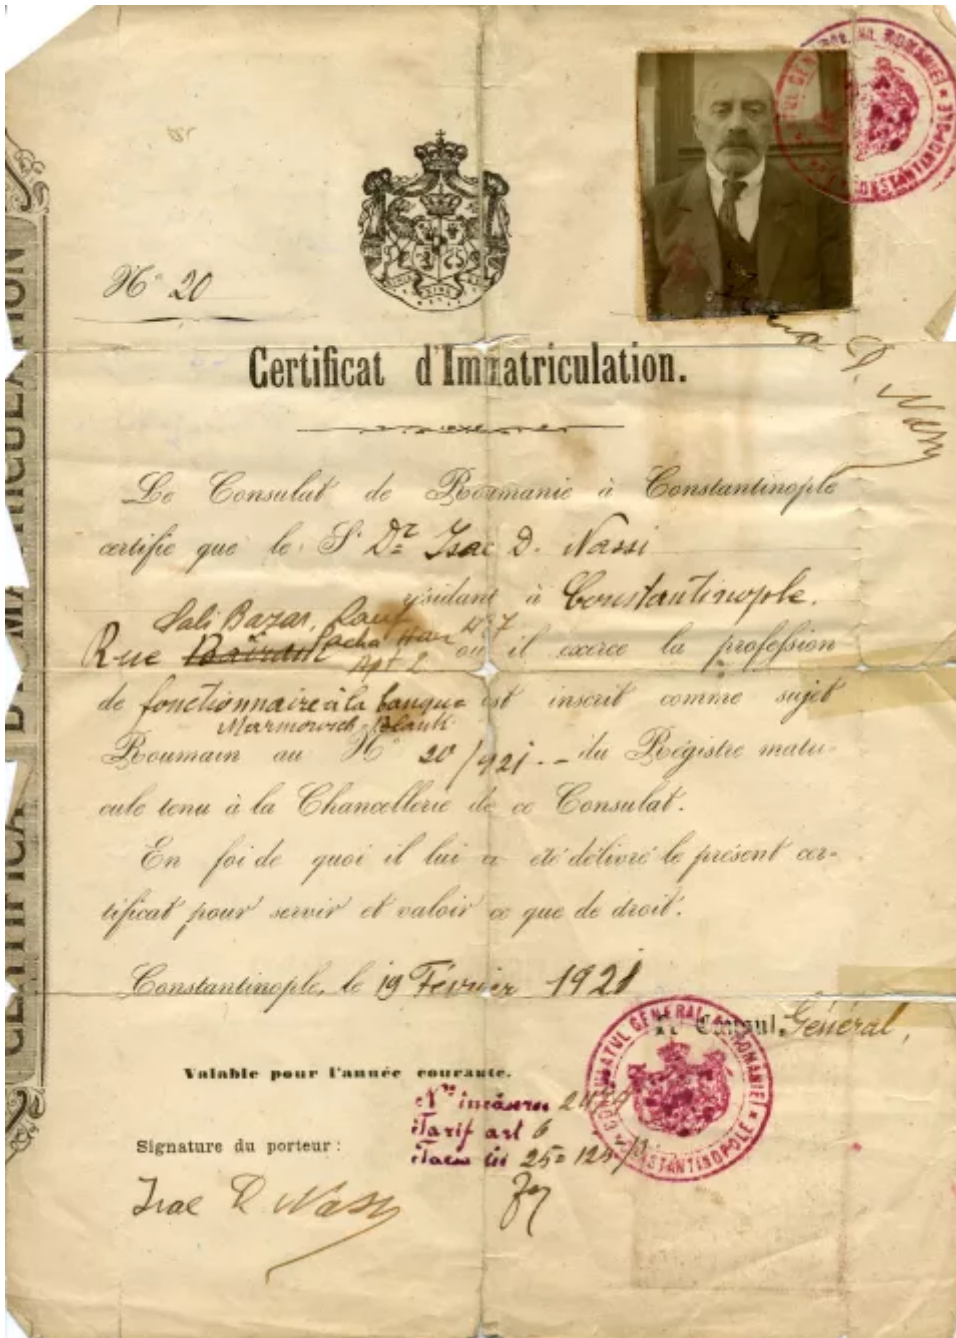 CONSULATUL GENERAL AL ROMANIEI * CONSTANTINOPOLE *
No 20
Certificat d'Immatriculation.
D. Nassi
Le Consulat de Roumanie à Constantinople
certifie que le Sr Dr Isac D. Nassi
résidant à Constantinople.
Sali Bazar, Rauf
Pacha Han No 7
Rue
Apt 2
où il exerce la profession
de fonctionnaire à la banque est inscrit comme sujet
Marmorosch Blank
Roumain au No 20/921.- du Régistre matri-
cule tenu à la Chancellerie de ce Consulat.
En foi de quoi il lui a été délivré le présent cer-
tificat pour servir et valoir ce que de droit.
Constantinople, le 19 Février 1921
Le Consul, Général,
CONSULATUL GENERAL AL ROMANIEI * CONSTANTINOPOLE *
Valable pour l'année courante.
Tarif art 6
Taxa lei 25=
Signature du porteur :
Isac D. Nassi
CERTIFICAT D'IMMATRICULATION